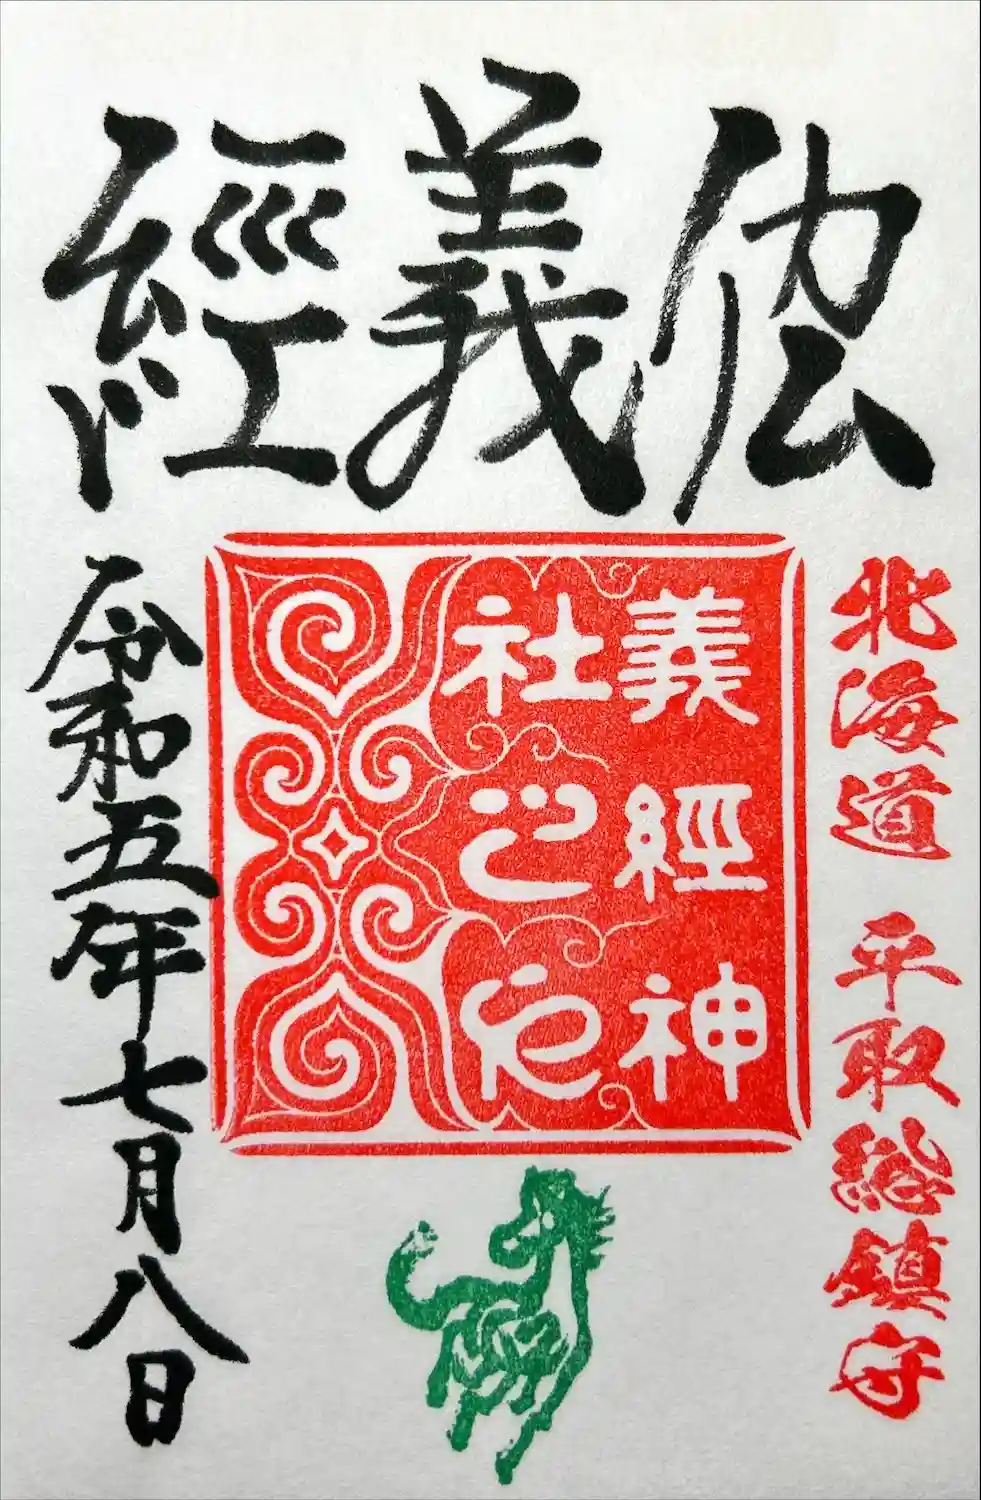 北海道 平取総鎮守
義經
義經神
社
令和五年七月八日